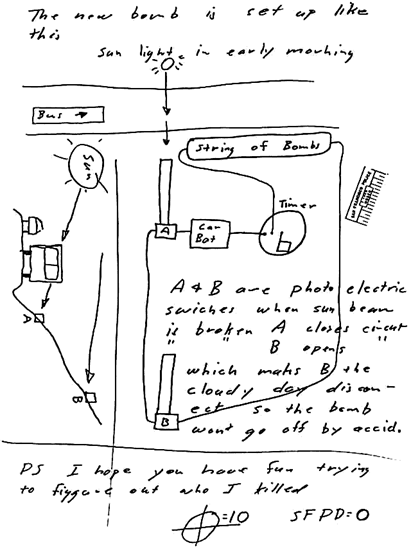 The new bomb is set up like
this
sun light in early morning
Bus
Sun
String of Bombs
A
Car
Bat
Timer
A
B
A & B are photo electric
swiches when sun beam
is broken A closes circut
" " B opens "
which mahs B the
cloudy day discon-
ect so the bomb
wont go off by accid.
B
PS I hope you have fun trying
to figgure out who I killed
=10 SFPD=0